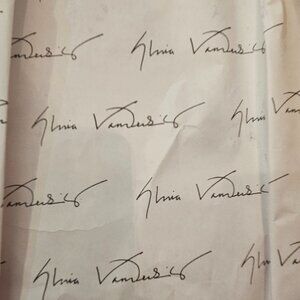 Vanderbilt Gloria Vanderbilt
Gloria Vanderbilt Gloria
Vanderbilt Gloria Vanderbilt
Gloria Vanderbilt Gloria